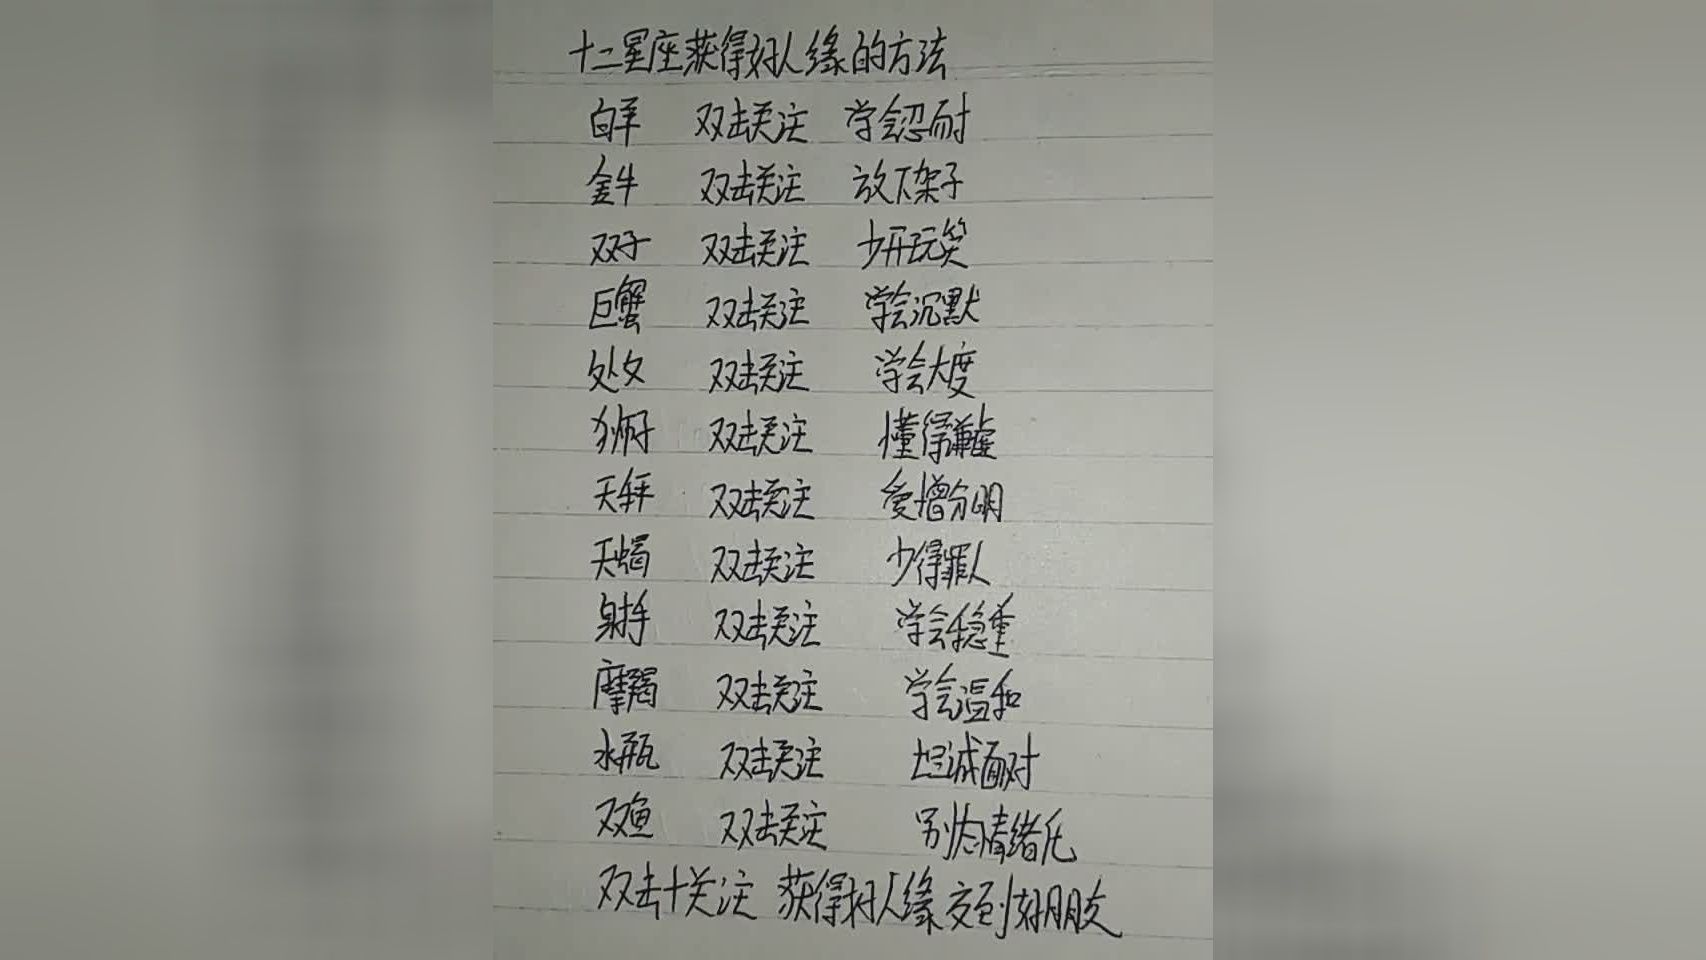 十二星座获得好人缘的方法
白羊 双击关注 学会忍耐
金牛 双击关注 放下架子
双子 双击关注 少开玩笑
巨蟹 双击关注 学会沉默
处女 双击关注 学会大度
狮子 双击关注 懂得谦虚
天秤 双击关注 爱增分明
天蝎 双击关注 少得罪人
射手 双击关注 学会稳重
摩羯 双击关注 学会温和
水瓶 双击关注 坦诚面对
双鱼 双击关注 别太情绪化
双击十关注 获得好人缘 交到好朋友